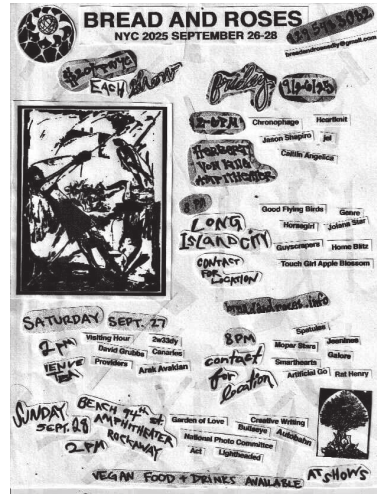 BREAD AND ROSES
NYC 2025 SEPTEMBER 26-28
EACH Show
friday 9/26/25
2-6 PM Chronophage Heartknit
Jason Shapiro jei
Caitlin Angelica
HERBERT
VON KING
AMPITHEATER
8 PM
LONG
ISLAND CITY
CONTACT
FOR
LOCATION
Good Flying Birds Genre
Horsegirl Jolana Star
Guyscrapers Home Blitz
Touch Girl Apple Blossom
SATURDAY SEPT. 27
2 PM
VENUE
TBA
Visiting Hour 2w33dy
David Grubbs Canaries
Providers Arak Avakian
8PM
contact
for
location
Spatulas
Mopar Stars Jeanines
Smarthearts Galore
Artificial Go Rat Henry
SUNDAY
SEPT. 28
2 PM
BEACH 94th st
AMPHITHEATER
ROCKAWAY
Garden of Love Creative Writing
Bullseye Autobahn
National Photo Committee
Act Lightheaded
VEGAN FOOD + DRINKS AVAILABLE AT SHOWS